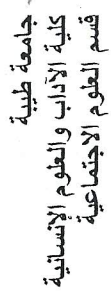 جامعة طيبة
كلية الآداب والعلوم الإنسانية
قسم العلوم الاجتماعية